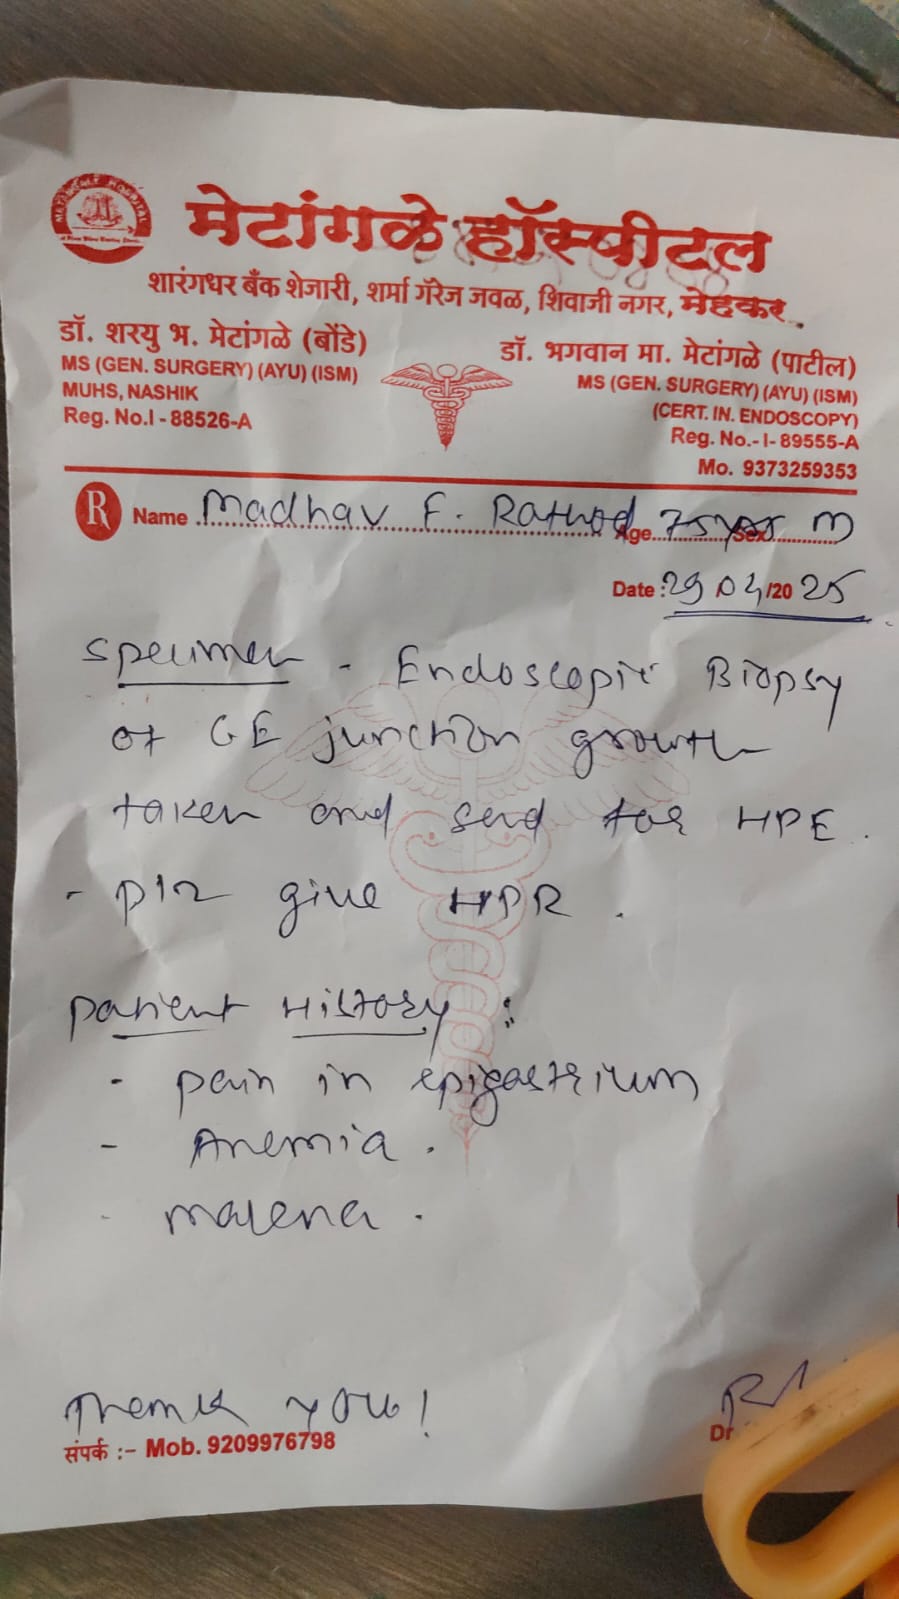 मेटांगळे हॉस्पीटल
शारंगधर बँक शेजारी, शर्मा गॅरेज जवळ, शिवाजी नगर, मेहकर.
डॉ. शरयु भ. मेटांगळे (बोंडे)
MS (GEN. SURGERY) (AYU) (ISM)
MUHS, NASHIK
Reg. No.I - 88526-A
डॉ. भगवान मा. मेटांगळे (पाटील)
MS (GEN. SURGERY) (AYU) (ISM)
(CERT. IN. ENDOSCOPY)
Reg. No.- I- 89555-A
Mo. 9373259353
R Name Madhav F. Rathod Age 75 yrs Sex M
Date : 29/04/2025
Specimen - Endoscopic Biopsy
of GE junction growth
taken and send for HPE.
- plz give HPR.
Patient History :
- pain in epigastrium
- Anemia.
- malena.
Thank you!
संपर्क :- Mob. 9209976798
Dr